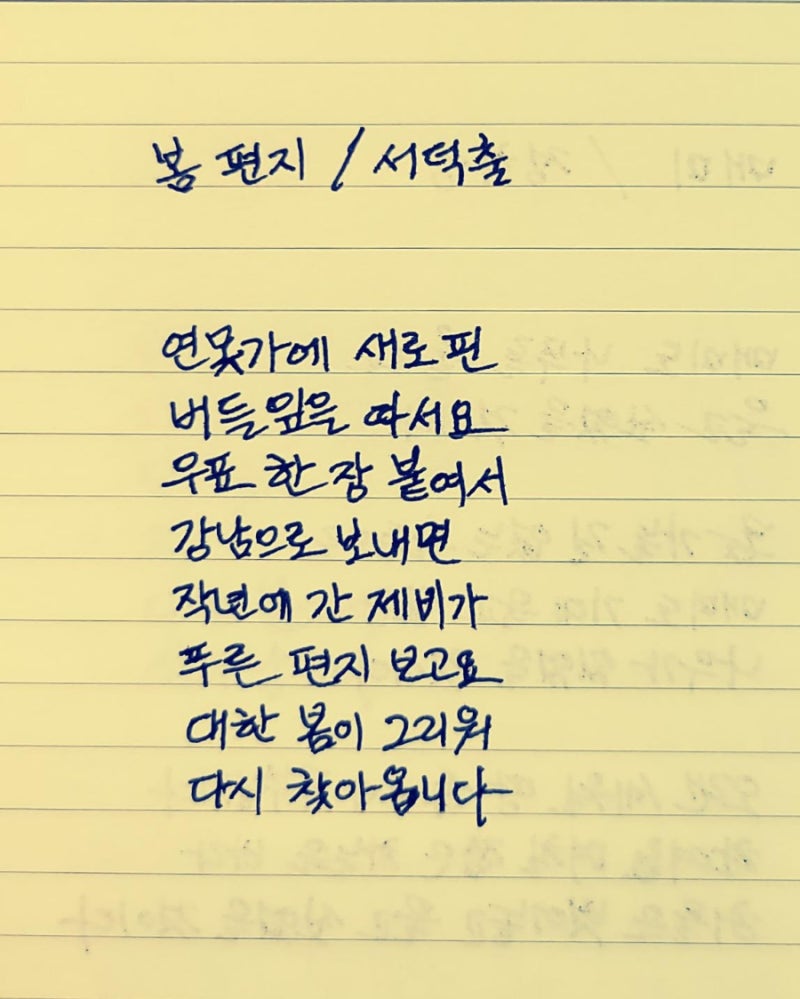 봄 편지 / 서덕출
연못가에 새로 핀
버들잎을 따서요
우표 한 장 붙여서
강남으로 보내면
작년에 간 제비가
푸른 편지 보고요
대한 봄이 그리워
다시 찾아옵니다